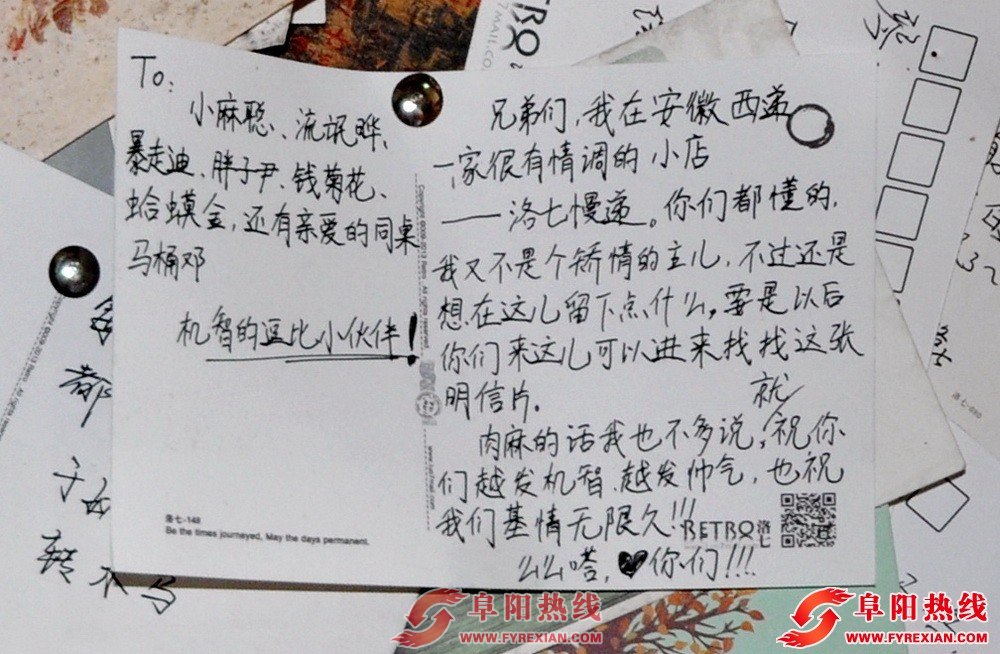 To:
小麻聪、流氓晔、
暴走迪、胖子尹、钱菊花、
蛤蟆金,还有亲爱的同桌
马桶邓
机智的逗比小伙伴!
洛七-148
Be the times journeyed, May the days permanent.
兄弟们,我在安徽西递
一家很有情调的小店
——洛七慢递。你们都懂的,
我又不是个矫情的主儿,不过还是
想在这儿留下点什么,要是以后
你们来这儿可以进来找找这张
明信片。
肉麻的话我也不多说,就祝你
们越发机智、越发帅气,也祝
我们基情无限久!!!
么么嗒,♥你们!!!
RETRO 洛七
RETRO
7MAIL.CO
都
子
阜阳热线
WWW.FYREXIAN.COM
阜阳热线
WWW.FYREXIAN.COM